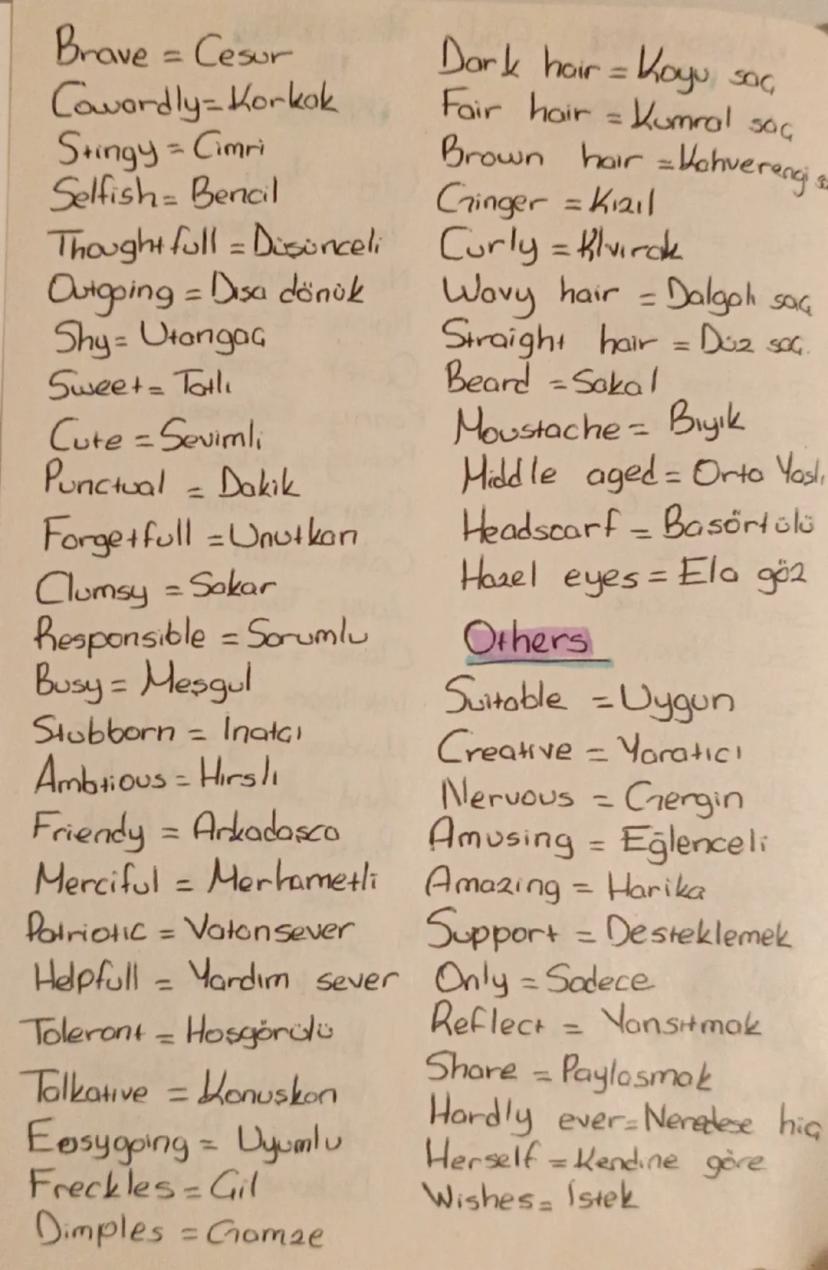 Brave = Cesur
Cowardly = Korkak
Stingy = Cimri
Selfish = Bencil
Thoughtfull = Düşünceli
Outgoing = Dısa dönük
Shy = Utangaç
Sweet = Tatlı
Cute = Sevimli
Punctual = Dakik
Forgetfull = Unutkan
Clumsy = Sakar
Responsible = Sorumlu
Busy = Meşgul
Stubborn = Inatçı
Ambtious = Hırslı
Friendy = Arkadasca
Merciful = Merhametli
Patriotic = Vatansever
Helpfull = Yardım sever
Tolerant = Hosgörülü
Talkative = Konuskan
Easygoing = Uyumlu
Freckles = Çil
Dimples = Gamze
Dark hair = Koyu saç
Fair hair = Kumral saç
Brown hair = Kahverengi
Ginger = Kızıl
Curly = Kıvırcık
Wavy hair = Dalgalı saç
Straight hair = Düz saç
Beard = Sakal
Moustache = Bıyık
Middle aged = Orta Yaslı
Headscarf = Basörtülü
Hazel eyes = Ela göz
Others
Suitable = Uygun
Creative = Yaratıcı
Nervous = Gergin
Amusing = Eğlenceli
Amazing = Harika
Support = Desteklemek
Only = Sadece
Reflect = Yansıtmak
Share = Paylasmak
Hardly ever = hiç
Herself = Kendine göre
Wishes = İstek